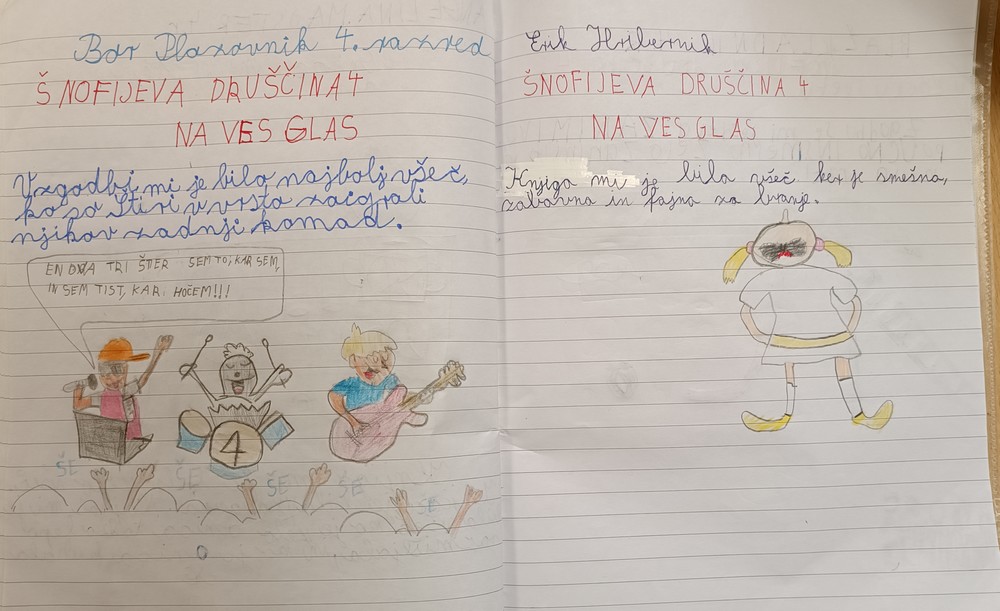 Bor Plazovnik 4. razred
ŠNOFIJEVA DRUŠČINA 4
NA VES GLAS
V zgodbi mi je bilo najbolj všeč,
ko so Štiri v vrsto zaigrali
njihov zadnji komad.
EN DVA TRI ŠTIER SEM TO, KAR SEM,
IN SEM TIST, KAR HOČEM!!!
4
ŠE ŠE ŠE ŠE ŠE
Erik Hribernik
ŠNOFIJEVA DRUŠČINA 4
NA VES GLAS
Knjiga mi je bila všeč ker je smešna,
zabavna in fajna za branje.